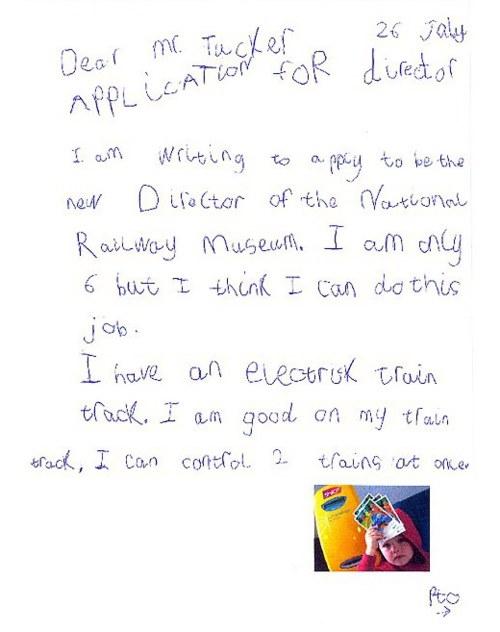 26 July
Dear Mr. Tucker
APPLiCATION FOR director
I am writing to apply to be the
new Director of the National
Railway Museum. I am only
6 but I think I can do this
job.
I have an electrik train
track. I am good on my train
track, I can control 2 trains at once.
Pto
→